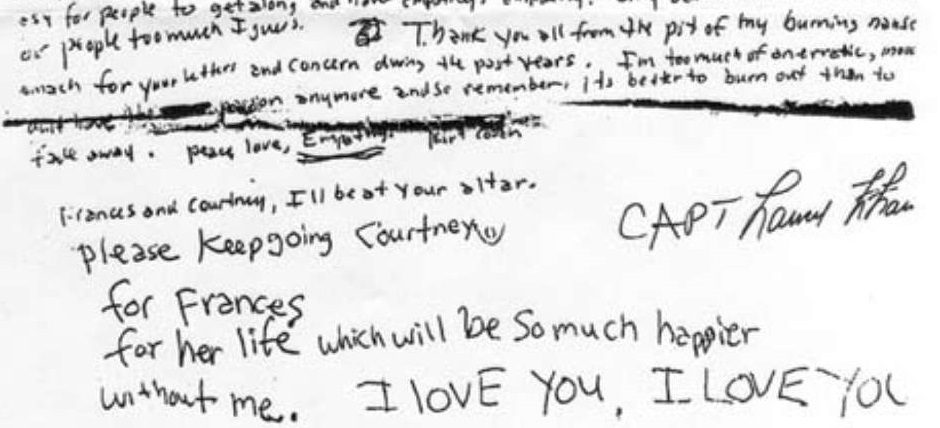 esy for people to get along and have empathy.
or people too much I guess. Thank you all from the pit of my burning nause
omach for your letters and concern during the past years. I'm too much of an erratic, moo
don't have the passion anymore and so remember, its better to burn out than to
fade away. peace love, Empathy. Kurt Cobain
Frances and Courtney, I'll be at your altar.
please Keep going Courtney
CAPT
for Frances
for her life which will be so much happier
without me. I LOVE YOU, I LOVE YOU